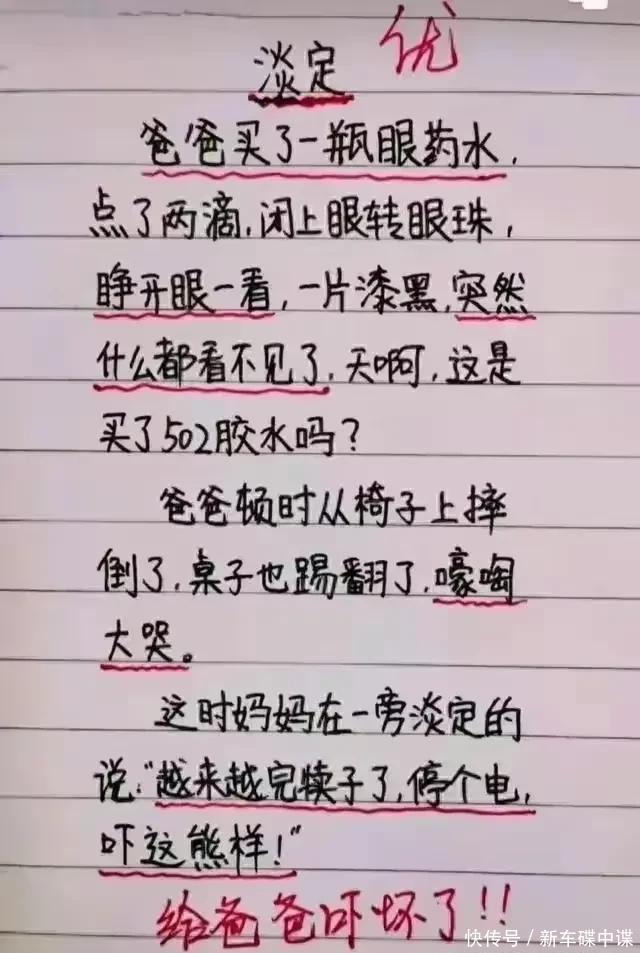 优
淡定
爸爸买了一瓶眼药水，
点了两滴，闭上眼转眼珠，
睁开眼一看，一片漆黑，突然
什么都看不见了，天啊，这是
买了502胶水吗？
爸爸顿时从椅子上摔
倒了，桌子也踢翻了，嚎啕
大哭。
这时妈妈在一旁淡定的
说："越来越完犊子了，停个电，
吓这熊样！"
给爸爸吓坏了!!
快传号／新车碟中谍